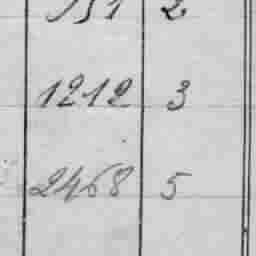 2
1212 3
2468 5